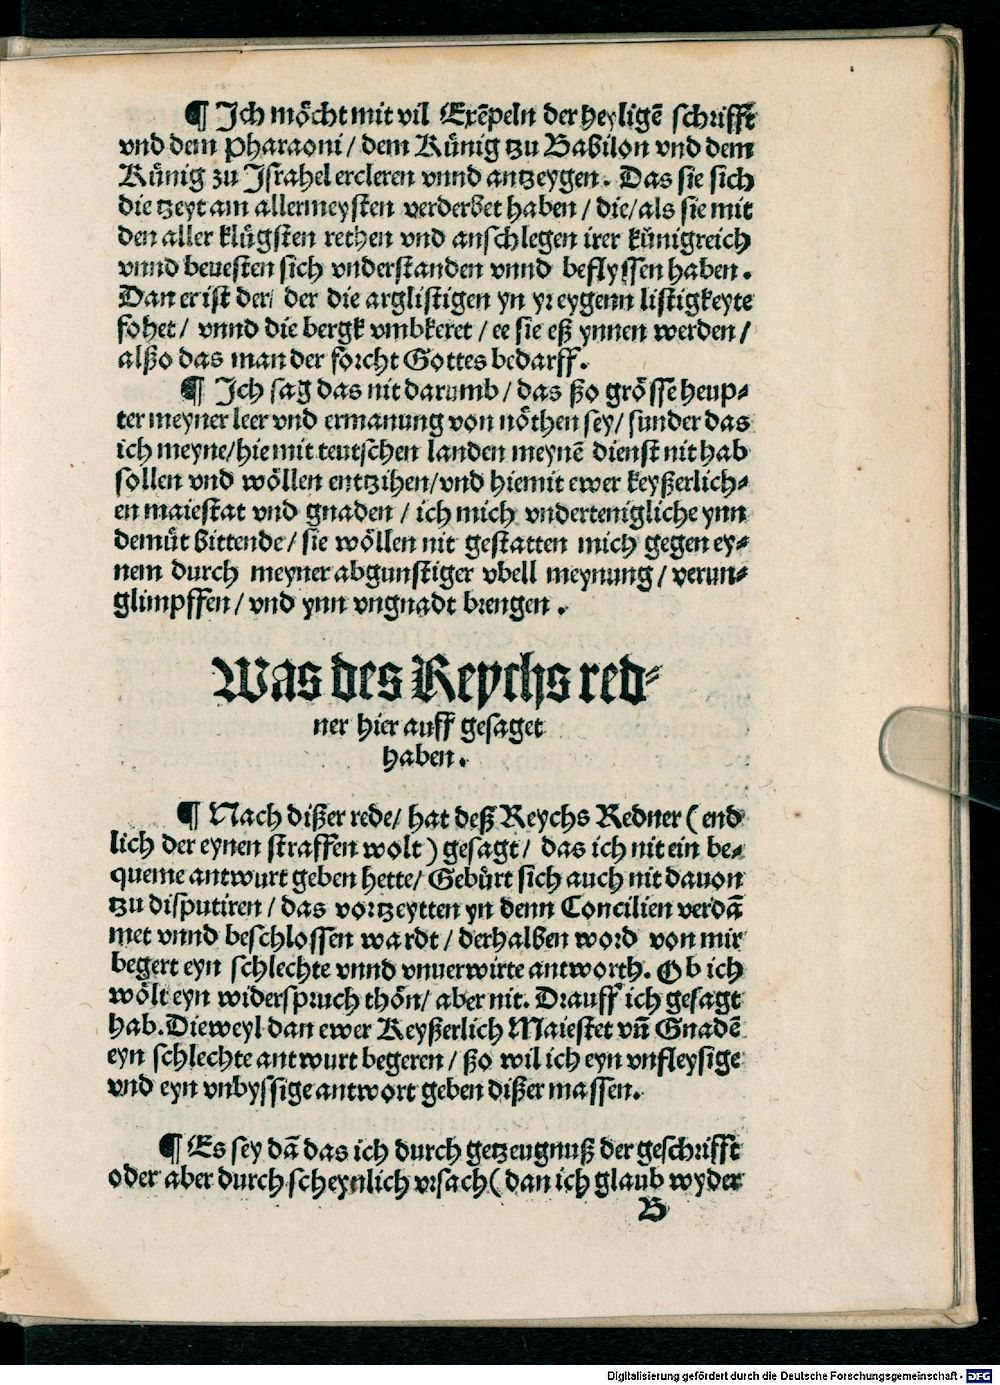 ¶ Ich möcht mit vil Exẽpeln der heyligẽ schrifft
vnd dem Pharaoni / dem Künig tzu Babilon vnd dem
Künig zu Israhel ercleren vnnd antzeygen. Das sie sich
die tzeyt am allermeysten verderbet haben / die / als sie mit
den aller klügsten rethen vnd anschlegen irer künigreich
vnnd beuesten sich vnderstanden vnnd beflyssen haben.
Dan er ist der / der die arglistigen yn yr eygenn listigkeyte
fohet / vnnd die bergk vmbkeret / ee sie eß ynnen werden /
alßo das man der forcht Gottes bedarff.
¶ Ich sag das nit darumb / das ßo grösse heup⸗
ter meyner leer vnd ermanung von nöthen sey / sunder das
ich meyne / hie mit teutschen landen meynẽ dienst nit hab
sollen vnd wöllen entzihen / vnd hiemit ewer keyßerlich⸗
en maiestat vnd gnaden / ich mich vndertenigliche ynn
demüt bittende / sie wöllen nit gestatten mich gegen ey⸗
nem durch meyner abgunstiger vbell meynung / verun⸗
glimpffen / vnd ynn vngnadt brengen.
Was des Reychs red⸗
ner hier auff gesaget
haben.
¶ Nach dißer rede / hat deß Reychs Redner ( end
lich der eynen straffen wolt ) gesagt / das ich nit ein be⸗
queme antwurt geben hette / Gebürt sich auch nit dauon
tzu disputiren / das vortzeytten yn denn Concilien verdã
met vnnd beschlossen wardt / derhalben word von mir
begert eyn schlechte vnnd vnuerwirte antworth. Ob ich
wölt eyn widerspruch thön / aber nit. Drauff ich gesagt
hab. Dieweyl dan ewer Keyßerlich Maiestet vñ Gnadẽ
eyn schlechte antwurt begeren / ßo wil ich eyn vnfleysige
vnd eyn vnbyssige antwort geben dißer massen.
¶ Es sey dã das ich durch getzeugnuß der geschrifft
oder aber durch scheynlich vrsach ( dan ich glaub wyder
B
Digitalisierung gefördert durch die Deutsche Forschungsgemeinschaft - DFG